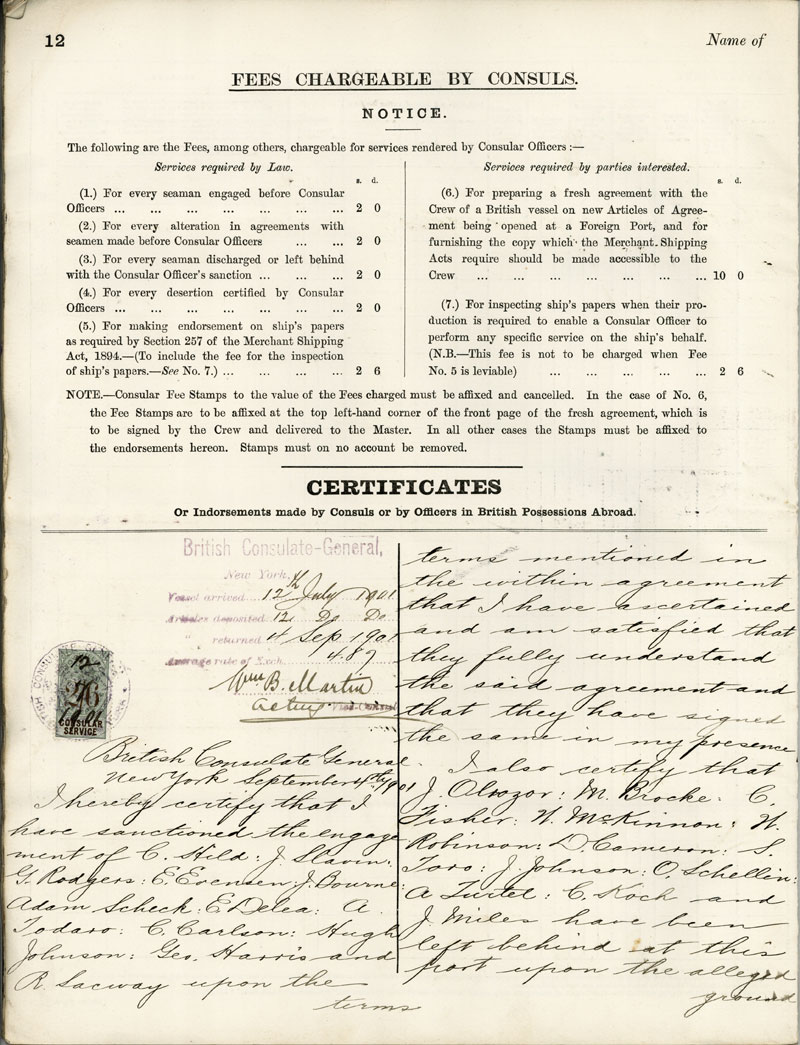 12
Name of
FEES CHARGEABLE BY CONSULS.
NOTICE.
The following are the Fees, among others, chargeable for services rendered by Consular Officers :—
Services required by Law.
s. d.
(1.) For every seaman engaged before Consular
Officers ... ... ... ... ... ... ... 2 0
(2.) For every alteration in agreements with
seamen made before Consular Officers ... ... 2 0
(3.) For every seaman discharged or left behind
with the Consular Officer's sanction ... ... ... 2 0
(4.) For every desertion certified by Consular
Officers ... ... ... ... ... ... ... 2 0
(5.) For making endorsement on ship's papers
as required by Section 257 of the Merchant Shipping
Act, 1894.—(To include the fee for the inspection
of ship's papers.—See No. 7.) ... ... ... ... 2 6
Services required by parties interested.
s. d.
(6.) For preparing a fresh agreement with the
Crew of a British vessel on new Articles of Agree-
ment being opened at a Foreign Port, and for
furnishing the copy which the Merchant Shipping
Acts require should be made accessible to the
Crew ... ... ... ... ... ... ... 10 0
(7.) For inspecting ship's papers when their pro-
duction is required to enable a Consular Officer to
perform any specific service on the ship's behalf.
(N.B.—This fee is not to be charged when Fee
No. 5 is leviable) ... ... ... ... ... 2 6
NOTE.—Consular Fee Stamps to the value of the Fees charged must be affixed and cancelled. In the case of No. 6,
the Fee Stamps are to be affixed at the top left-hand corner of the front page of the fresh agreement, which is
to be signed by the Crew and delivered to the Master. In all other cases the Stamps must be affixed to
the endorsements hereon. Stamps must on no account be removed.
CERTIFICATES
Or Indorsements made by Consuls or by Officers in British Possessions Abroad.
British Consulate-General,
New York,
Vessel arrived 12th July 1901
Articles deposited 12 Do Do
" returned 4 Sep 1901
Average rate of Exch. 4.87
Wm B. Martin
Acting Vice-Consul
12
2/6
CONSULAR
SERVICE
British Consulate General
New York September 4th 1901
I hereby certify that I
have sanctioned the engage
ment of C. Hild: J. Slavin:
G. Rodgers: E. Evensen: J. Bourne
Adam Scheck: E. Delea: A.
Todaro: C. Carlson: Hugh
Johnson: Geo. Harris and
R. Sacway upon the
terms
terms mentioned in
the within agreement
that I have ascertained
and am satisfied that
they fully understand
the said agreement and
that they have signed
the same in my presence
I also certify that
J. : M. Brocke: C.
Fisher: N. McKinnon: W.
Robinson: D. Cameron: S.
Toro: J. Johnson: O. Schellin:
A : C. Koch and
J. Miles have been
left behind at this
port upon the alleged
ground